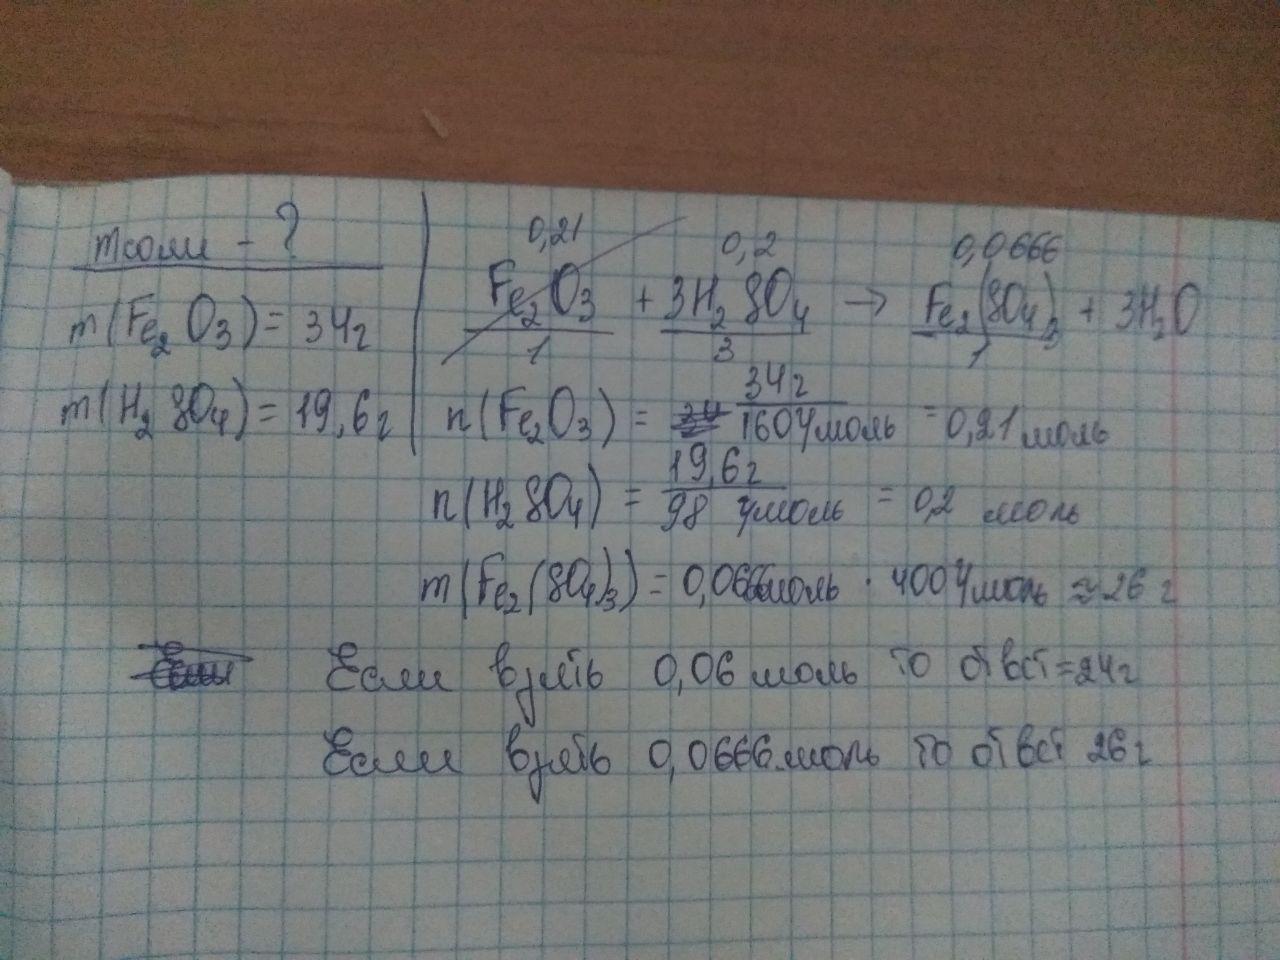 mсоли - ?
m(Fe2O3) = 34г
m(H2SO4) = 19,6г
0,21 0,2 0,0666
Fe2O3 + 3H2SO4 → Fe2(SO4)3 + 3H2O
1 3 1
n(Fe2O3) = 34г / 160г/моль = 0,21 моль
n(H2SO4) = 19,6г / 98 г/моль = 0,2 моль
m(Fe2(SO4)3) = 0,0666моль · 400г/моль ≈ 26 г
Если взять 0,06 моль то ответ = 24г
Если взять 0,0666 моль то ответ 26г